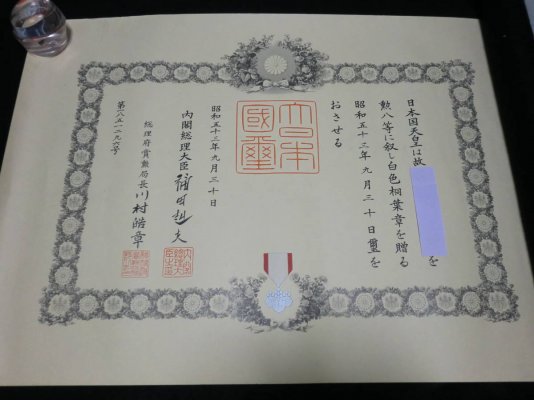 日本国天皇は故 を
勲八等に叙し白色桐葉章を贈る
昭和五十三年九月三十日璽を
おさせる
大日本
國璽
昭和五十三年九月三十日
内閣総理大臣 福田赳夫
総理府賞勲局長 川村皓章
第六五一二九六号